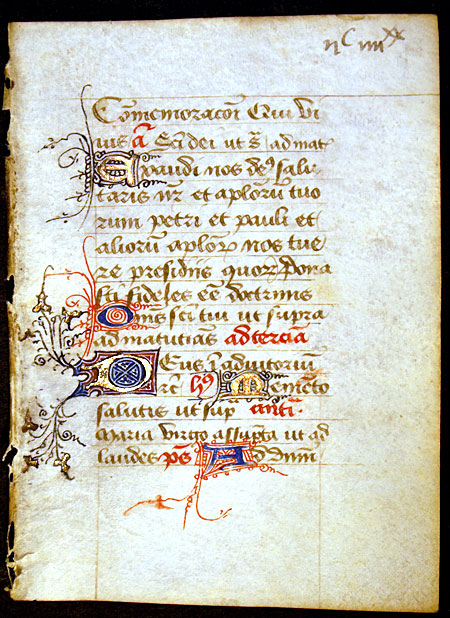 iiC iiiiXX
Cõmemoracõn Qui vi
uis a Sci dei ut s ad mat
Exaudi nos de9 salu
taris nr et aplorũ tuo
rum petri et pauli et
aliorũ aplor nos tue
re presidiis quor dona
sti fideles eẽ doctrinis
Omẽs sci tui ut supra
ad matutinas ad terciã
Deus ĩ adiutoriũ
Memẽto
salutis ut sup antiᵃ.
Maria virgo assũpta ut ad
laudes ps Ad dnm